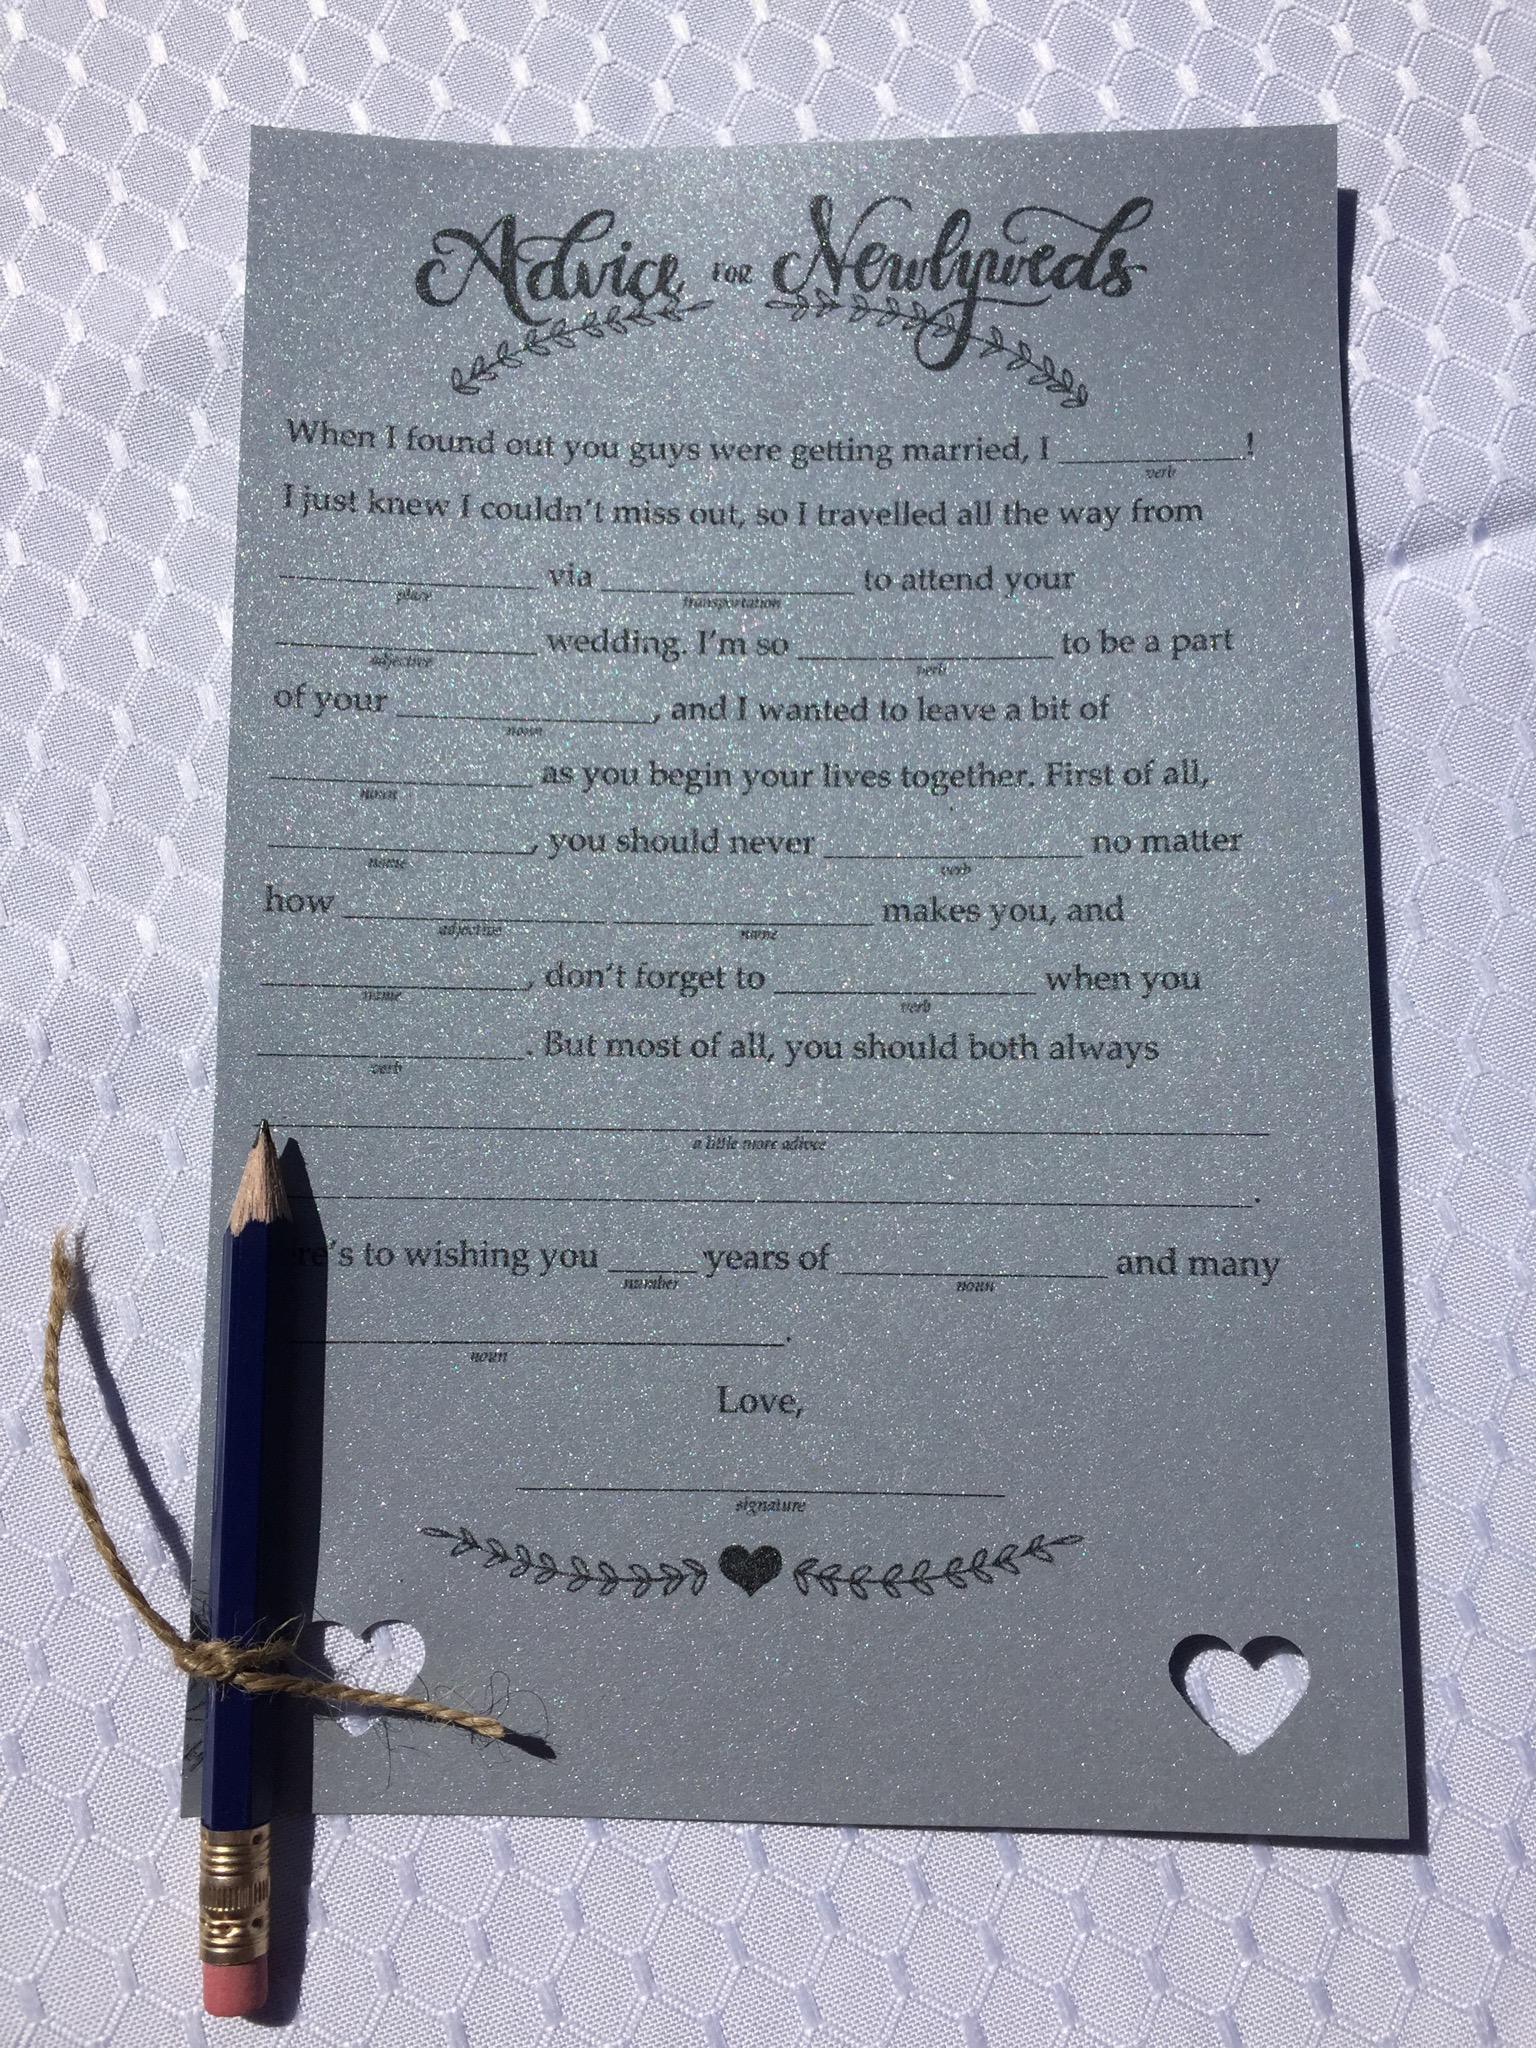 Advice FOR Newlyweds
When I found out you guys were getting married, I __________!
verb
I just knew I couldn't miss out, so I travelled all the way from
__________ via __________ to attend your
place transportation
__________ wedding. I'm so __________ to be a part
adjective verb
of your __________, and I wanted to leave a bit of
noun
__________ as you begin your lives together. First of all,
noun
__________, you should never __________ no matter
name verb
how __________ __________ makes you, and
adjective name
__________, don't forget to __________ when you
name verb
__________. But most of all, you should both always
verb
__________
a little more advice
__________.
re's to wishing you _____ years of __________ and many
number noun
__________.
noun
Love,
__________
signature